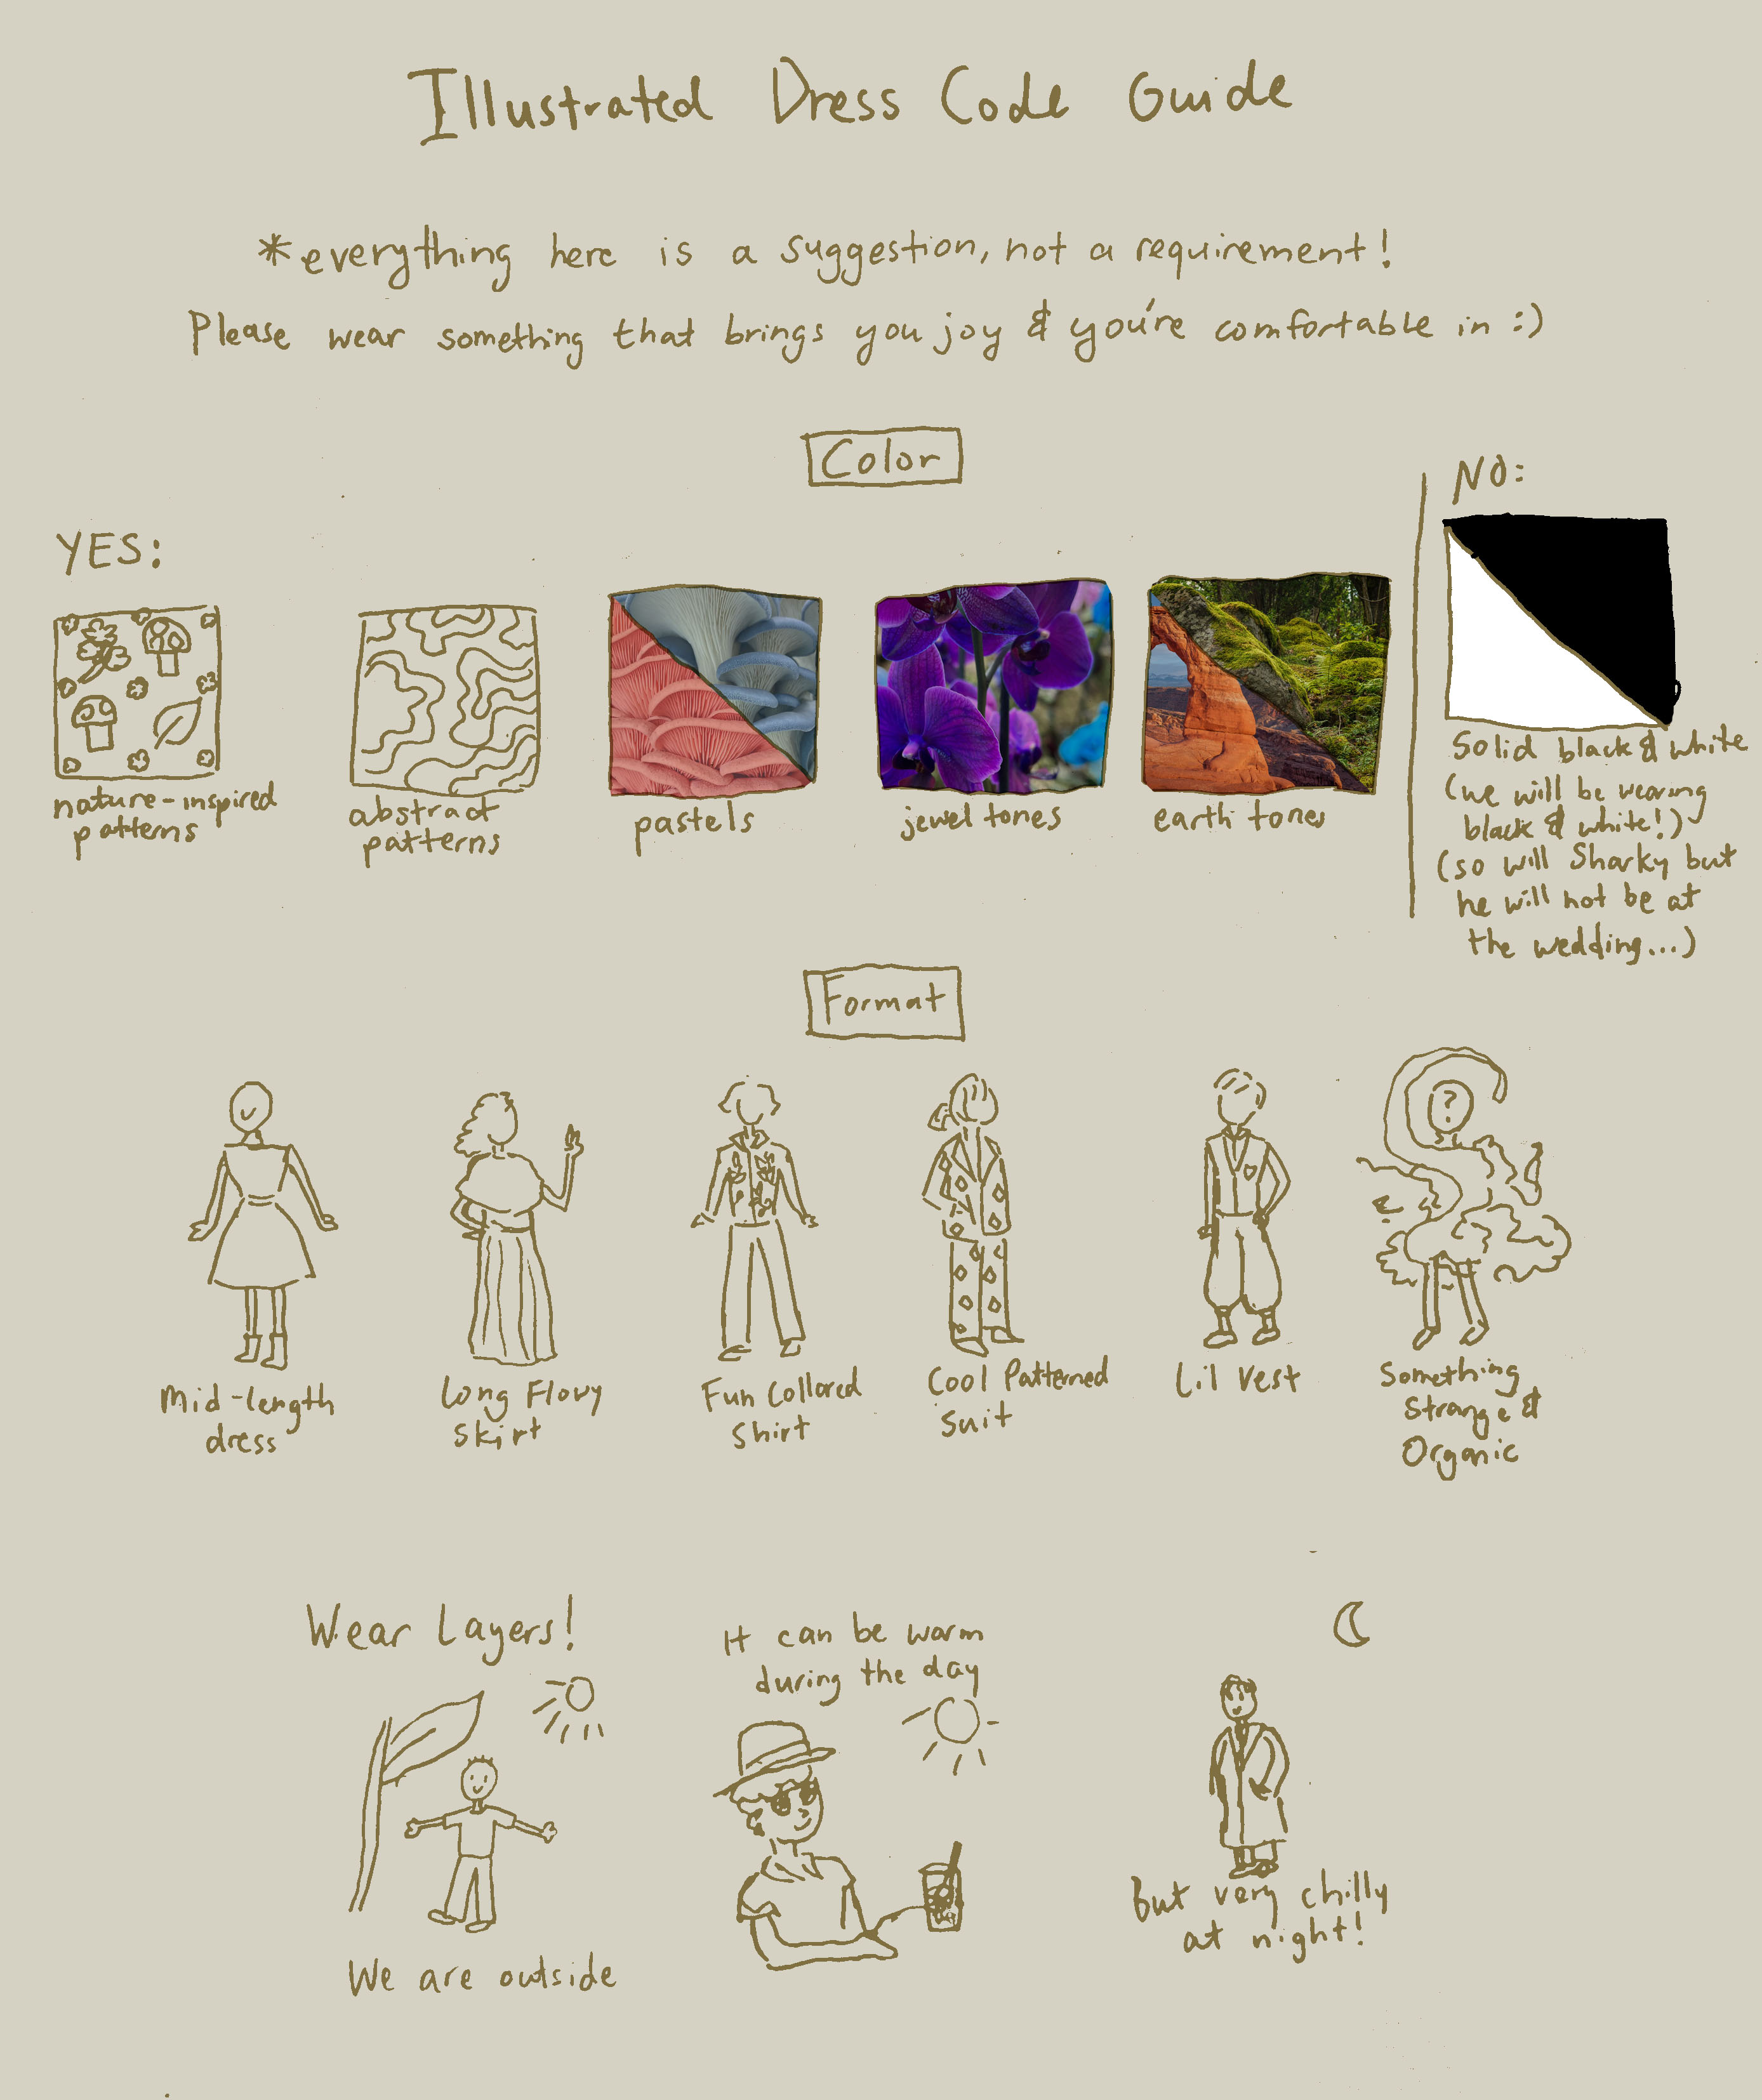 Illustrated Dress Code Guide
*everything here is a suggestion, not a requirement!
Please wear something that brings you joy & you're comfortable in :)
Color
YES:
nature-inspired
patterns
abstract
patterns
pastels
jewel tones
earth tones
NO:
Solid black & white
(we will be wearing
black & white!)
(so will Sharky but
he will not be at
the wedding...)
Format
Mid-length
dress
Long Flowy
Skirt
Fun Collared
Shirt
Cool Patterned
Suit
?
Lil Vest
Something
Strange &
Organic
Wear Layers!
We are outside
It can be warm
during the day
But very chilly
at night!